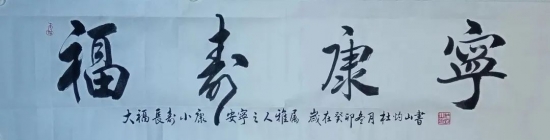 福寿康寧
大福長寿小康 安寧之人雅属 歲在癸卯春月 杜均山書